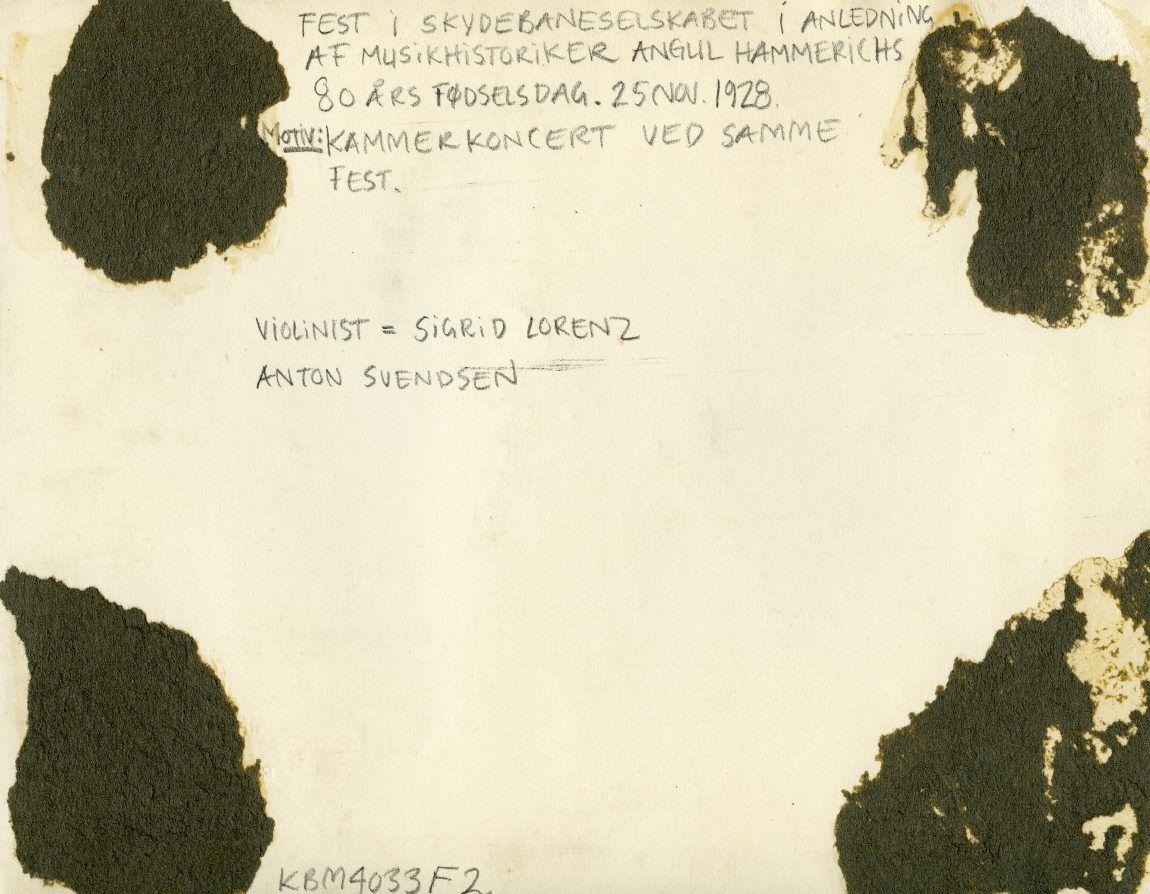 FEST I SKYDEBANESELSKABET I ANLEDNING
AF MUSIKHISTORIKER ANGUL HAMMERICHS
80 ÅRS FØDSELSDAG. 25 NOV. 1928.
MOTIV: KAMMERKONCERT VED SAMME
FEST.
VIOLINIST = SIGRID LORENZ
ANTON SVENDSEN
KBM4033F2.